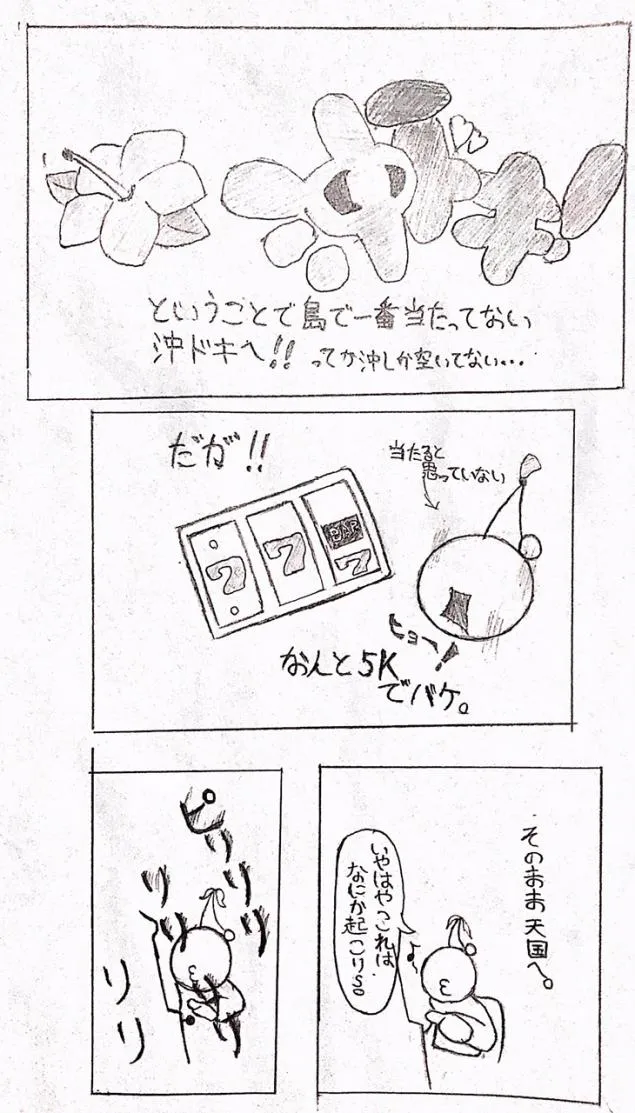 ということで島で一番当たってない
沖ドキへ!! ってか沖しか空いてない…
だが!!
当たると
思っていない
7 7 BAR
7
ヒョヘ!
なんと5K
でバケ。
そのまま天国へ。
いやはやこれは
なにか起こりS。
ピリリリリリリリ